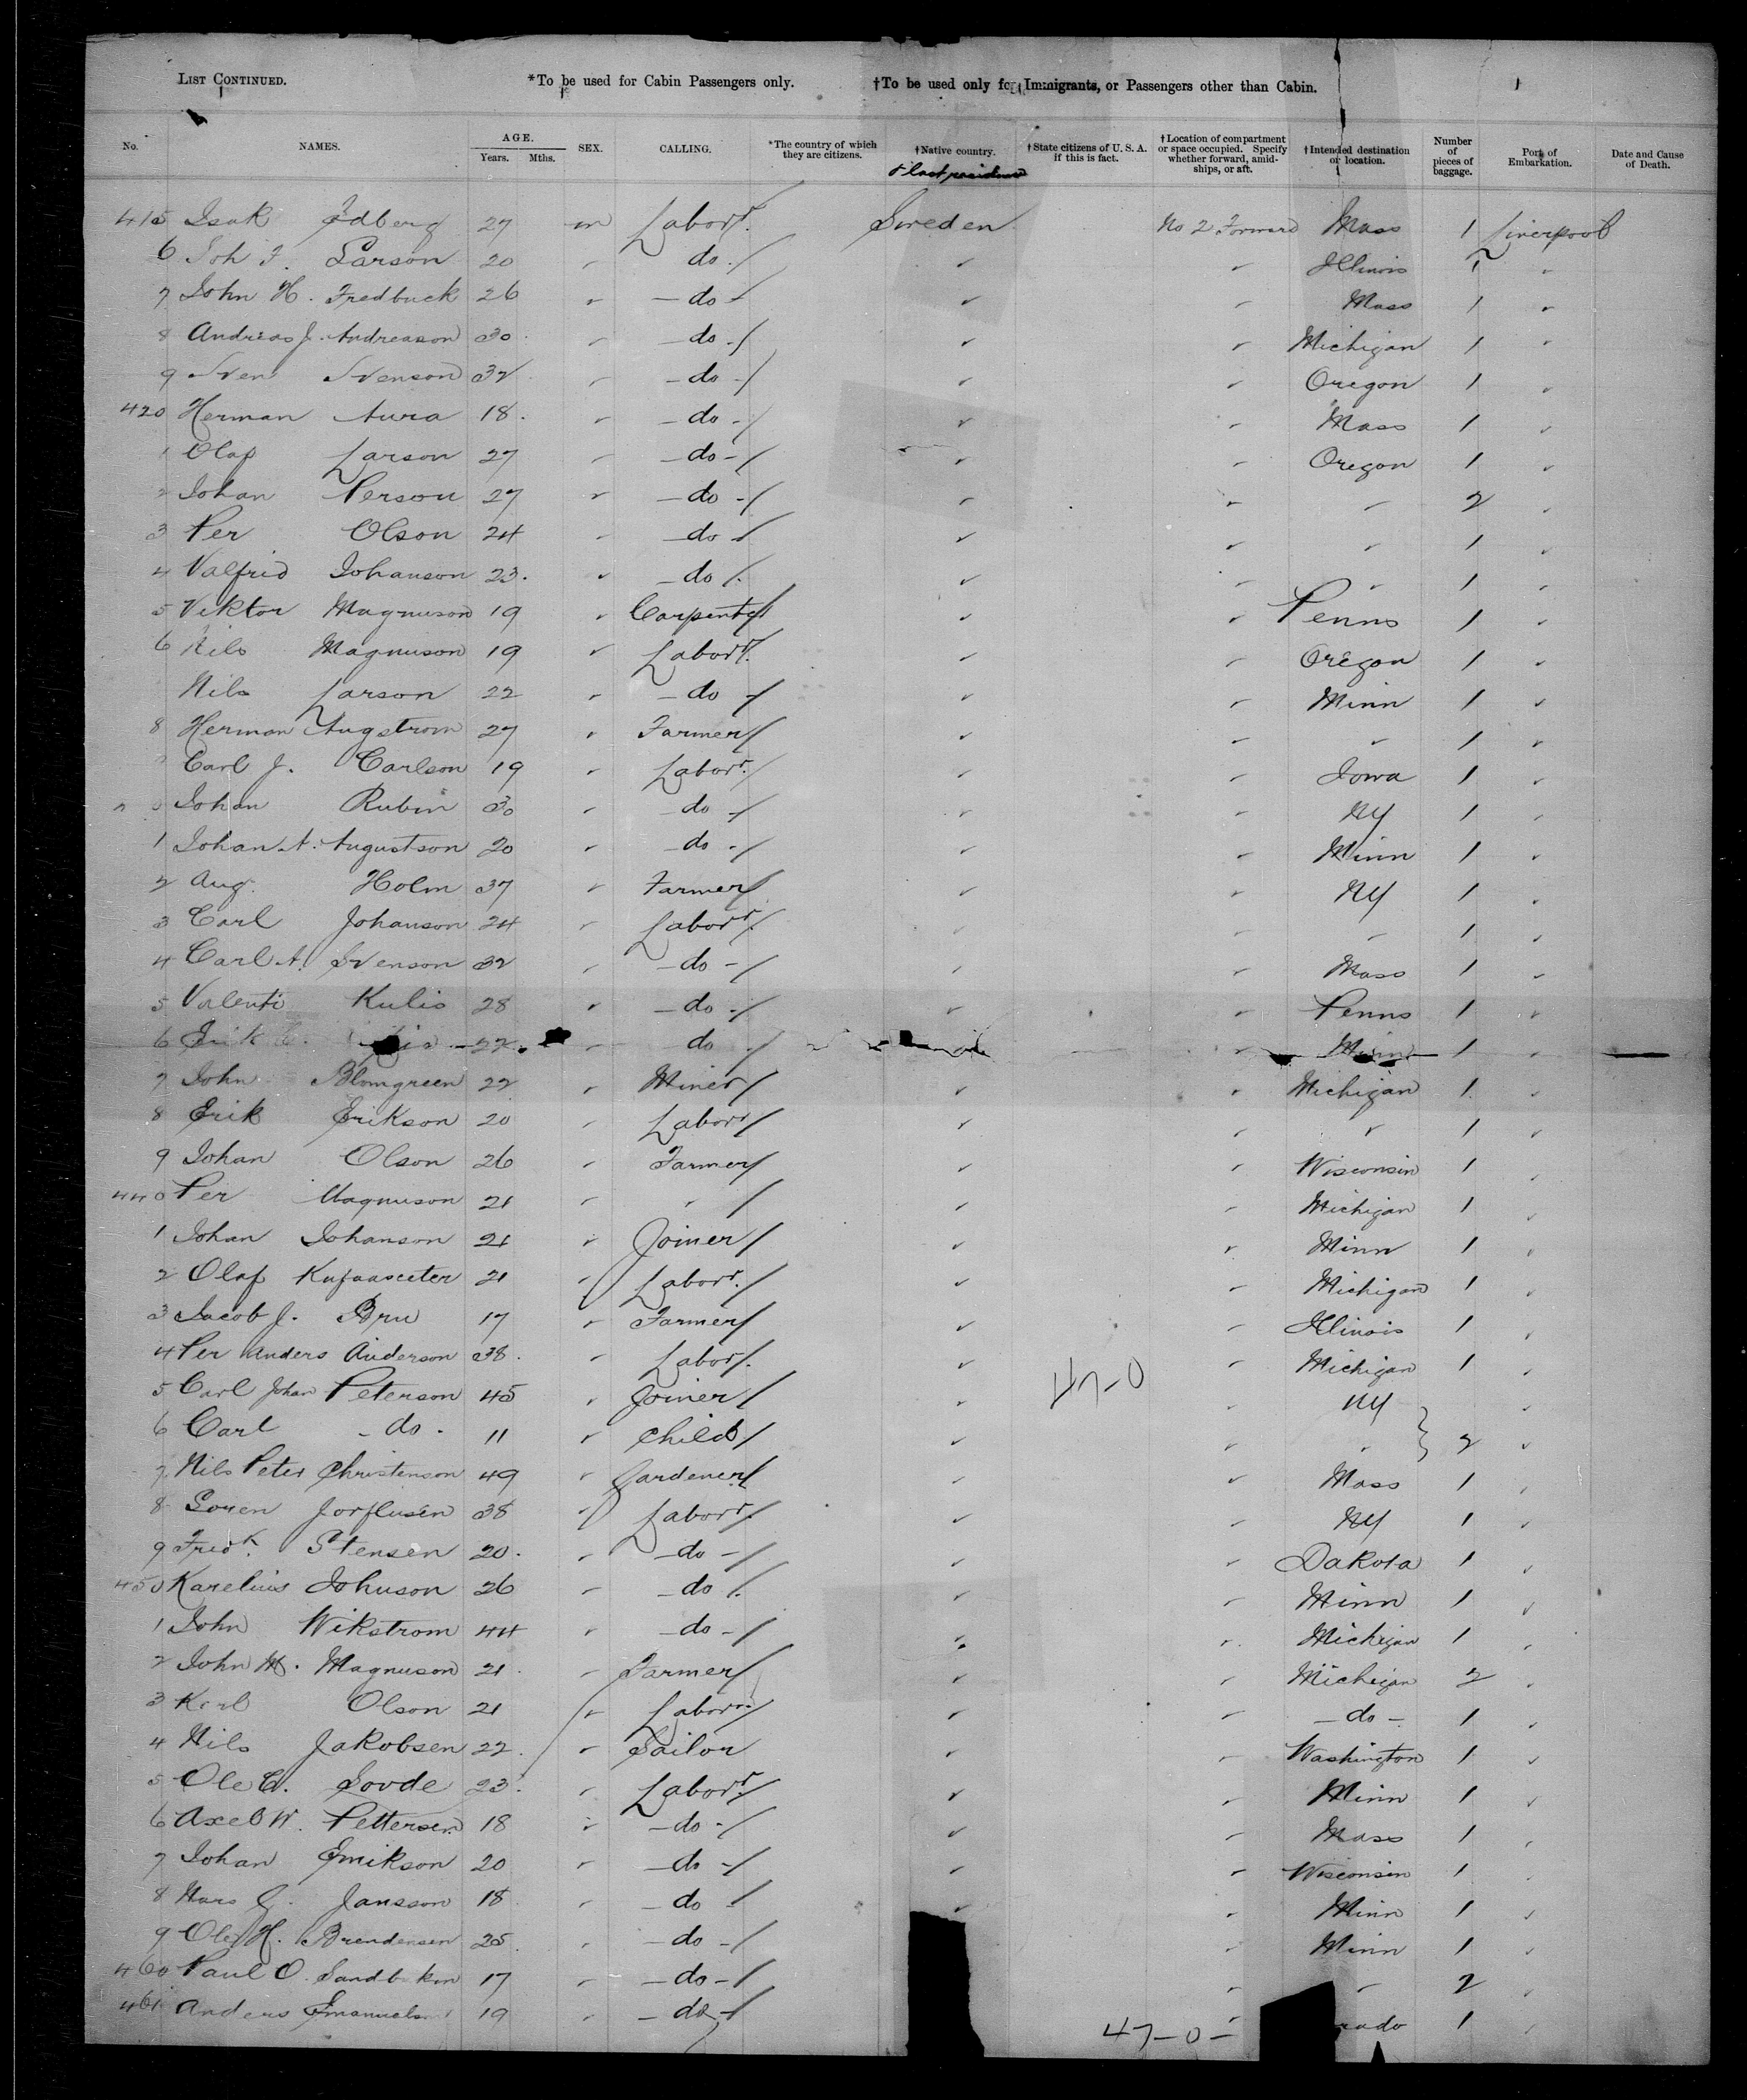 LIST CONTINUED. *To be used for Cabin Passengers only. †To be used only for Immigrants, or Passengers other than Cabin.
No. NAMES. AGE. Years. Mths. SEX. CALLING. *The country of which they are citizens. †Native country. †State citizens of U. S. A. if this is fact. †Location of compartment or space occupied. Specify whether forward, amidships, or aft. †Intended destination or location. Number of pieces of baggage. Port of Embarkation. Date and Cause of Death.
& last residence
415 Isak Edberg 27 m Labor. Sweden No 2 Forward Mass 1 Liverpool
6 Joh F. Larson 20 do Illinois 1
7 John H. Fredbuck 26 do Mass 1
8 Andreas J. Andreason 30 do Michigan 1
9 Sven Svenson 32 do Oregon 1
420 Herman Aura 18 do Mass 1
1 Olap Larson 27 do Oregon 1
2 Johan Person 27 do 2
3 Per Olson 24 do 1
4 Valfrid Johanson 23 do 1
5 Viktor Magnuson 19 Carpenter Penns 1
6 Nils Magnuson 19 Labor. Oregon 1
Nils Larson 22 do Minn 1
8 Herman Augstrom 27 Farmer 1
Carl J. Carlson 19 Labor. Iowa 1
Johan Rubin 30 do NY 1
1 Johan A. Augustson 20 do Minn 1
2 Aug. Holm 37 Farmer NY 1
3 Carl Johanson 24 Labor. 1
4 Carl A. Svenson 32 do Mass 1
5 Valenti Kulis 28 do Penns 1
6 Erik 22 do Minn 1
7 John Blomgreen 22 Miner Michigan 1
8 Erik Erikson 20 Labor 1
9 Johan Olson 26 Farmer Wisconsin 1
440 Per Magnuson 21 Michigan 1
1 Johan Johanson 21 Joiner Minn 1
2 Olaf 21 Labor. Michigan 1
3 Jacob J. Bru 17 Farmer Illinois 1
4 Per Anders Anderson 38 Labor. Michigan 1
47-0
5 Carl Johan Peterson 45 Joiner NY
6 Carl do 11 Child 2
7 Nils Peter Christenson 49 Gardener Mass 1
8 Soren 38 Labor. NY 1
9 Fredk. Stensen 20 do Dakota 1
450 Karelius Johnson 26 do Minn 1
1 John Wikstrom 44 do Michigan 1
2 John M. Magnuson 21 Farmer Michigan 2
3 Karl Olson 21 Labor. do 1
4 Nils Jakobsen 22 Sailor Washington 1
5 Ole C. Sovde 23 Labor. Minn 1
6 Axel W. Pettersen 18 do Mass 1
7 Johan Emikson 20 do Wisconsin 1
8 Jansson 18 do Minn 1
9 Ole H. Brendensen 25 do Minn 1
460 Paul O. 17 do 2
461 Anders 19 do rado 1
47-0-